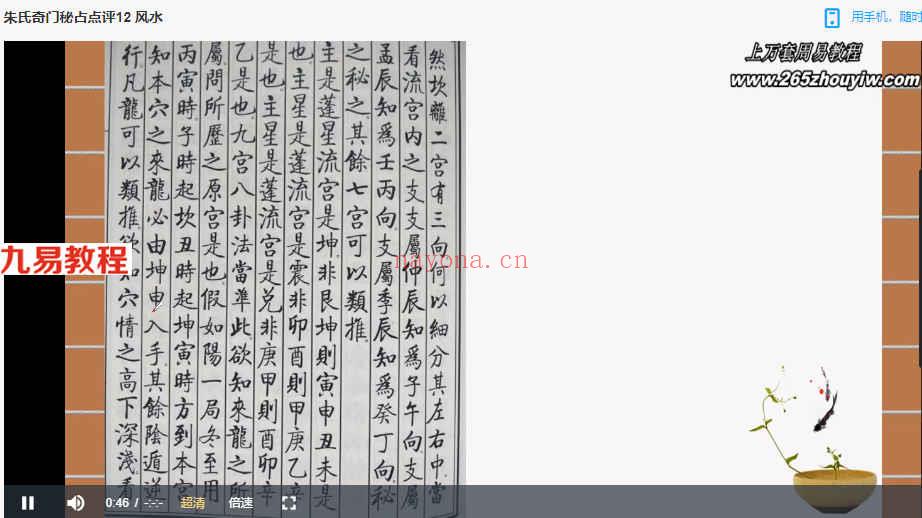 朱氏奇门秘占点评12 风水
用手机，随时
上万套周易教程
www.265zhouyiw.com
然坎離二宫有三向何以細分其左右中當
看流宫内之支支屬仲辰知為子午向支屬
孟辰知為壬丙向支屬季辰知為癸丁向秘
之秘之其餘七宫可以類推
主是蓬星流宫是坤非艮坤則寅申丑未是
也主星是蓬流宫是震非卯酉則甲庚乙辛
是也主星是蓬流宫是兑非庚甲則酉卯辛
乙是也九宫八卦法當準此欲知來龍之所
屬問所歷之原宫是也假如陽一局冬至用
丙寅時子時起坎丑時起坤寅時方到本宫
知本穴之來龍必由坤申入手其餘陰遁逆
行凡龍可以類推知穴情之高下深淺看
九易教程
nayona.cn
0:46 / -:-
超清
倍速